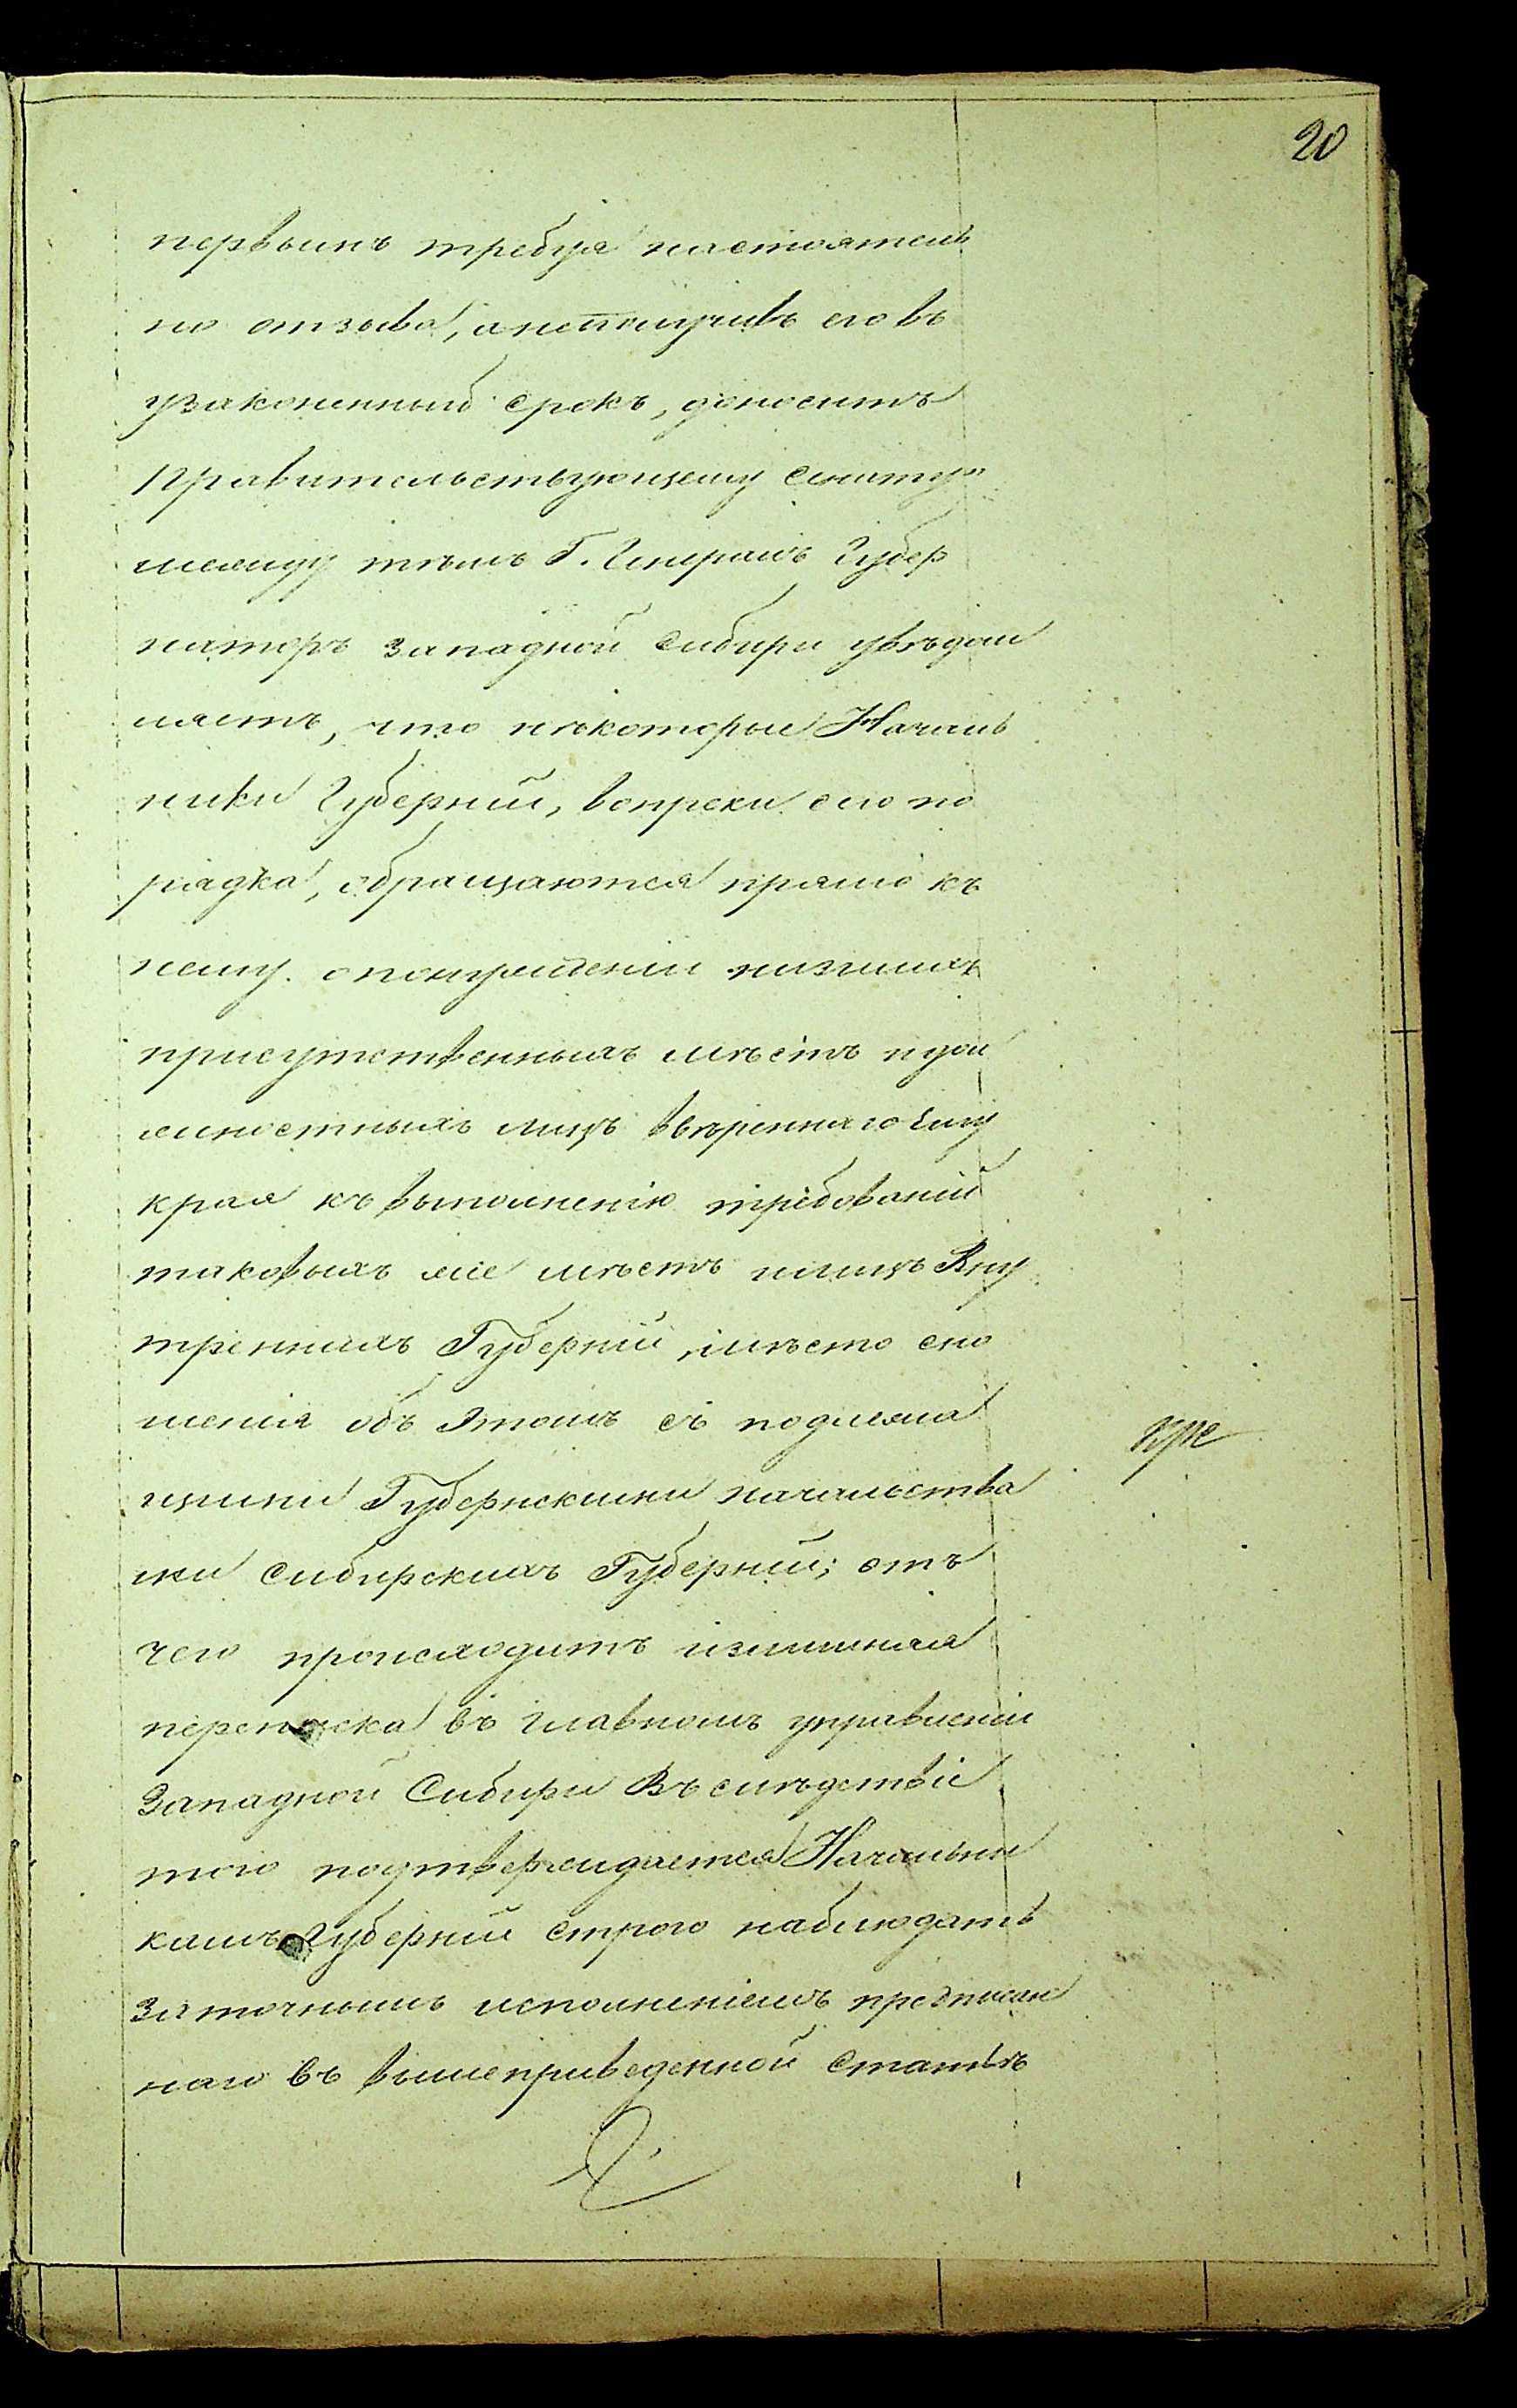 20
первымъ требуя настоятель
но отзыва, а неполучивъ его въ
узаконенный срокъ, доноситъ
Правительствующему Сенату
между тѣмъ Г. Генералъ Губер
наторъ западной Сибири увѣдом
ляетъ, что нѣкоторые Началь
ники Губерній, вопреки сего по
рядка, обращаются прямо къ
нему о понужденіи низшихъ
присутственныхъ мѣстъ и дол
жностныхъ лицъ ввѣреннаго Ему
края къ выполненію требованій
таковыхъ же мѣстъ и лицъ Вну
треннихъ Губерній, вмѣсто сно
шенія объ этомъ съ подлежа
щими Губернскими начальства
ми Сибирскихъ Губерній; отъ
чего происходитъ излишняя
переписка въ Главномъ управленіи
Западной Сибири Въ слѣдствіе
того подтверждается Начальни
камъ Губерній строго наблюдать
за точнымъ исполненіемъ предписан
наго въ вышеприведенной статьѣ